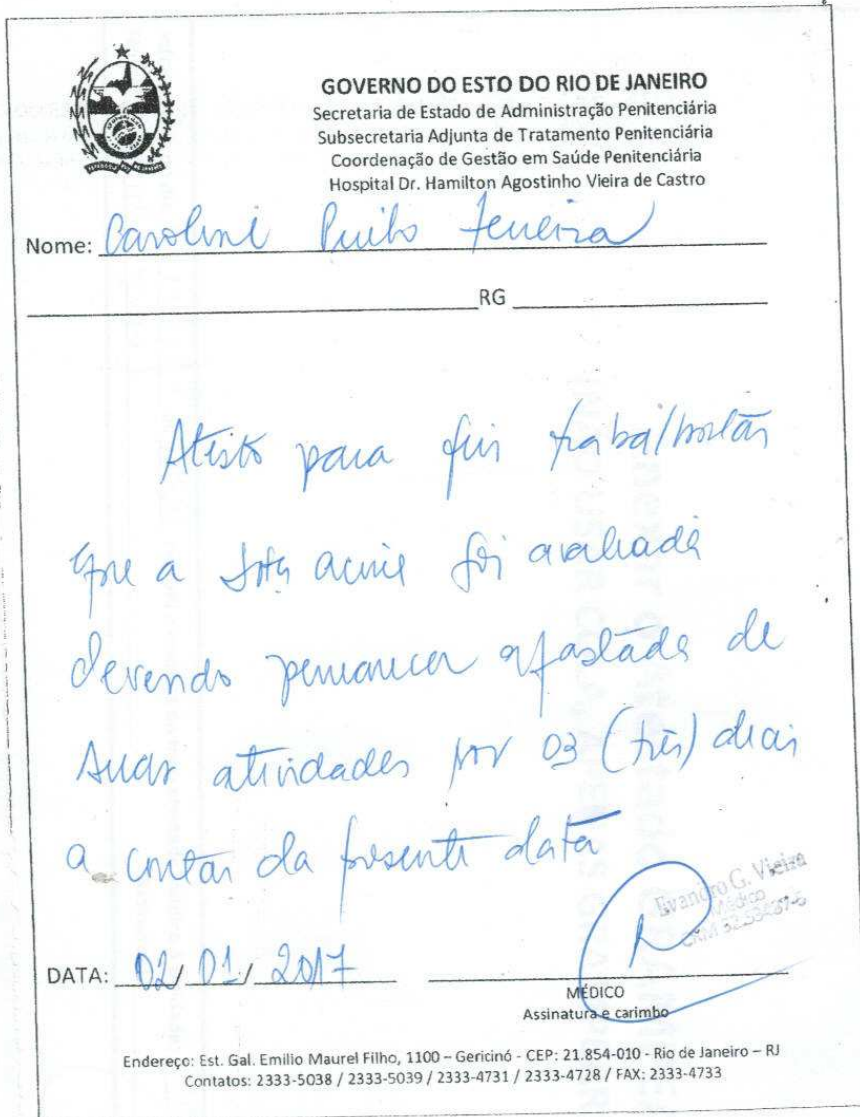 GOVERNO DO ESTO DO RIO DE JANEIRO
Secretaria de Estado de Administração Penitenciária
Subsecretaria Adjunta de Tratamento Penitenciária
Coordenação de Gestão em Saúde Penitenciária
Hospital Dr. Hamilton Agostinho Vieira de Castro
Nome: Caroline Ferreira
RG
Atesto para fins trabalhistas
que a foi avaliada
devendo permanecer afastada de
suas atividades por 03 (três) dias
a contar da presente data
Evandro G. Vieira
Médico
DATA: 02/01/2017
MÉDICO
Assinatura e carimbo
Endereço: Est. Gal. Emilio Maurel Filho, 1100 – Gericinó - CEP: 21.854-010 - Rio de Janeiro – RJ
Contatos: 2333-5038 / 2333-5039 / 2333-4731 / 2333-4728 / FAX: 2333-4733